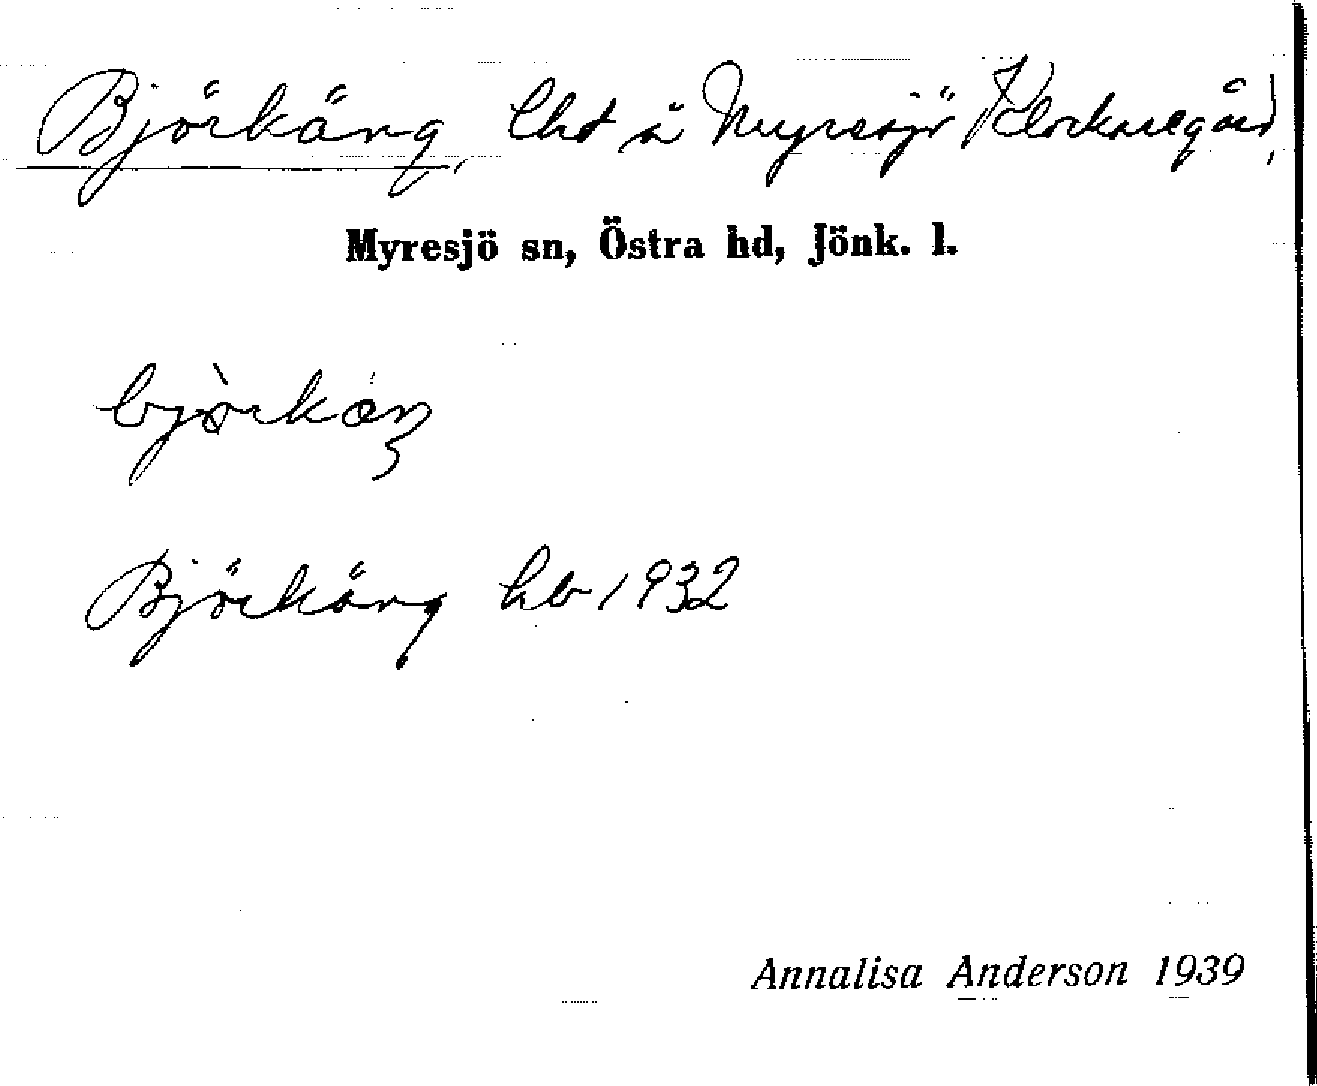 Björkäng, lht å Myresjö Klockaregård,
Myresjö sn, Östra hd, Jönk. l.
bjòrkæŋ
Björkäng hb 1932
Annalisa Anderson 1939